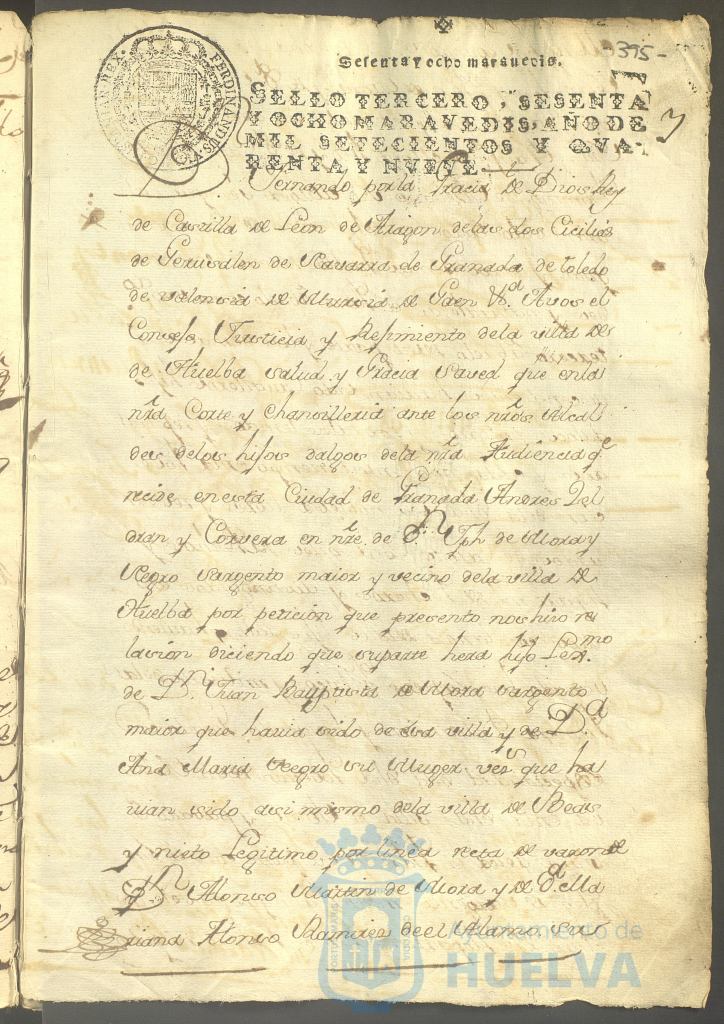 -395-
Sesenta y ocho marauedis.
SELLO TERCERO, SESENTA
Y OCHO MARAVEDIS, AÑO DE
MIL SETECIENTOS Y QVA-
RENTA Y NVEVE
3
FERDINANDUS
Fernando por la Gracia de Dios Rey
de Castilla de Leon de Aragon delas dos Cicilias
de Gerusalen de Navarra de Granada de toledo
de valensia de Mursia de Jaen &.ª Avos el
Consejo Justicia y Rejimiento dela villa de
de Huelba salud y Gracia saved que enla
nrã Corte y chansilleria ante los nrõs Alcal
des delos hijos dalgos dela nrã Audiencia q.e
recide enesta Ciudad de Granada Andres Bel
dran y Corvera en nrẽ. de D.n Jph de Mora y
Negro sargento maior y vecino dela villa de
Huelba por peticion que presento nos hiso re
lasion diciendo que suparte hera hijo Lex.mo
de D.n Juan Bauptista de Mora sargento
maior que havia sido de esa villa y de D.a
Ana Maria Negro su Muger vez.s que ha
vian sido asi mismo dela villa de Beas
y nieto Legitimo por linea recta de varon de
D.n Alonso Martin de Mora y de D.a Ma
riana Alonso Ramires de el Alamo sus
Ayuntamiento de
HUELVA